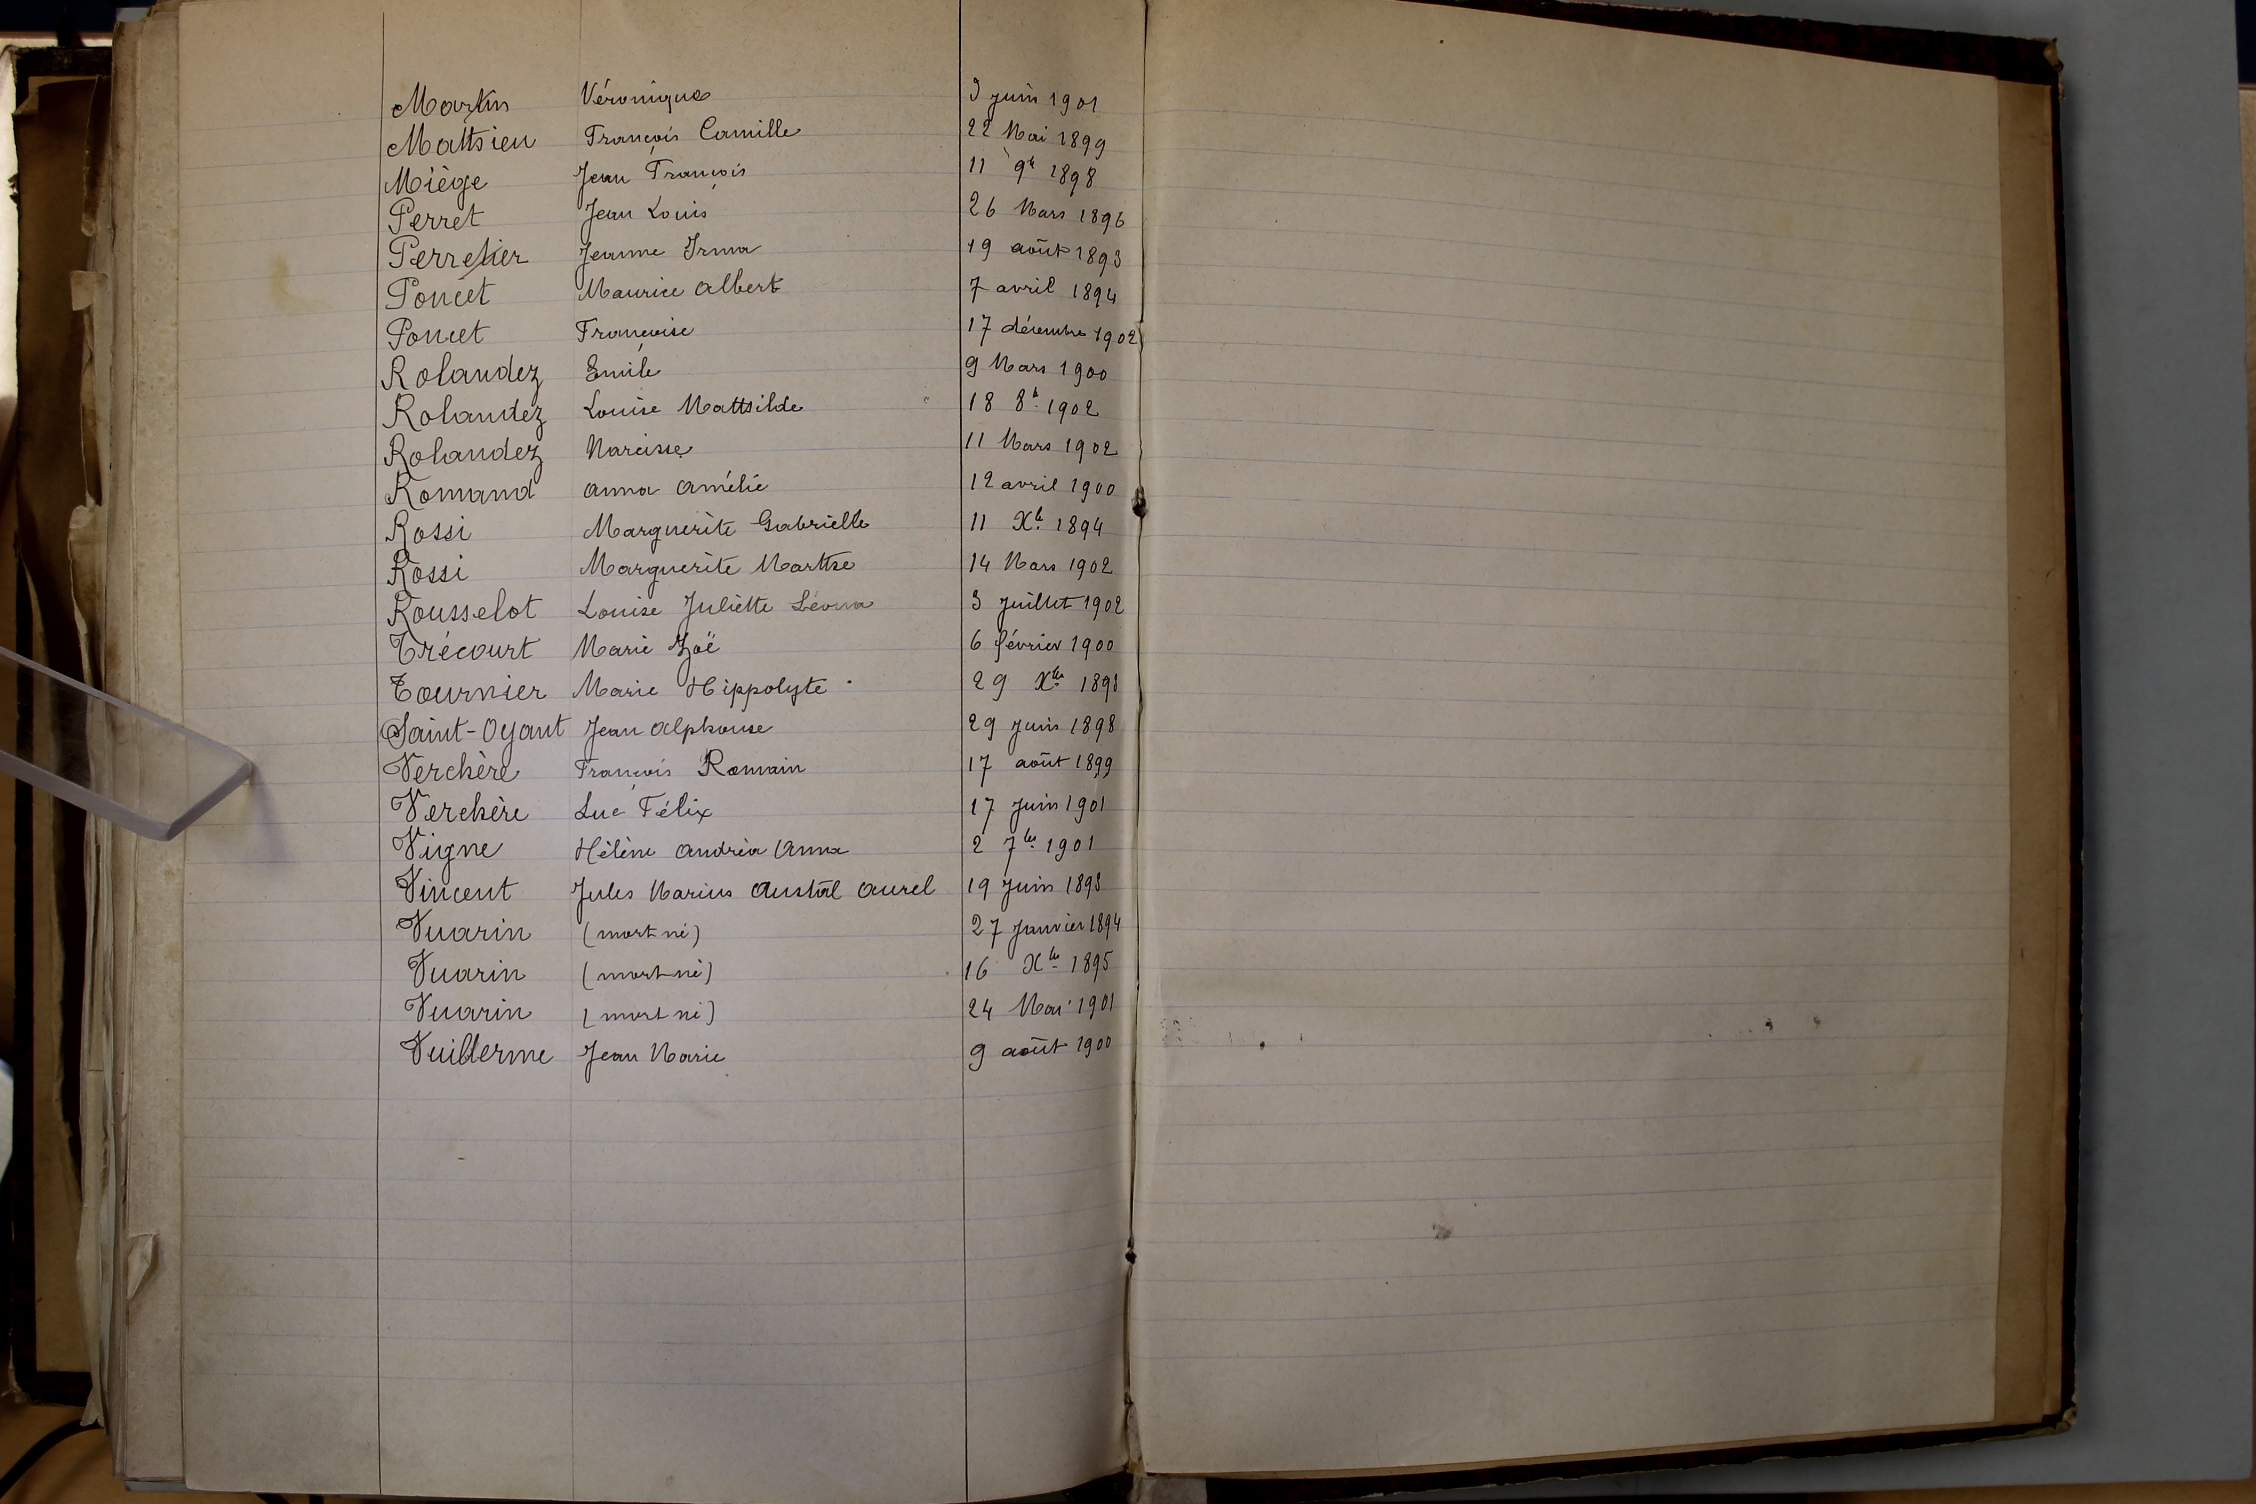 Martin Véronique 9 juin 1901
Matthieu François Camille 22 Mai 1899
Miège Jean François 11 9bre 1898
Perret Jean Louis 26 Mars 1896
Perretier Jeanne Irma 19 août 1893
Poncet Maurice Albert 7 avril 1894
Poncet Françoise 17 décembre 1902
Rolandez Emile 9 Mars 1900
Rolandez Louise Mathilde 18 8b. 1902
Rolandez Narcisse 11 Mars 1902
Romand Anna Amélie 12 avril 1900
Rossi Marguerite Gabrielle 11 Xb. 1894
Rossi Marguerite Marthe 14 Mars 1902
Rousselot Louise Juliette 3 juillet 1902
Trécourt Marie Zoë 6 février 1900
Tournier Marie Hippolyte 29 Xbre
Saint-Oyant Jean Alphonse 29 juin 1898
Verchère François Romain 17 août 1899
Verchère Luc Félix 17 juin 1901
Vigne Hélène Andréa Anna 2 7bre 1901
Vincent Jules Marius Austal Aurel 19 juin
Vuarin (mort né) 27 Janvier 1894
Vuarin (mort né) 16 Xbre 1895
Vuarin (mort né) 24 Mai 1901
Vuillerme Jean Marie 9 août 1900